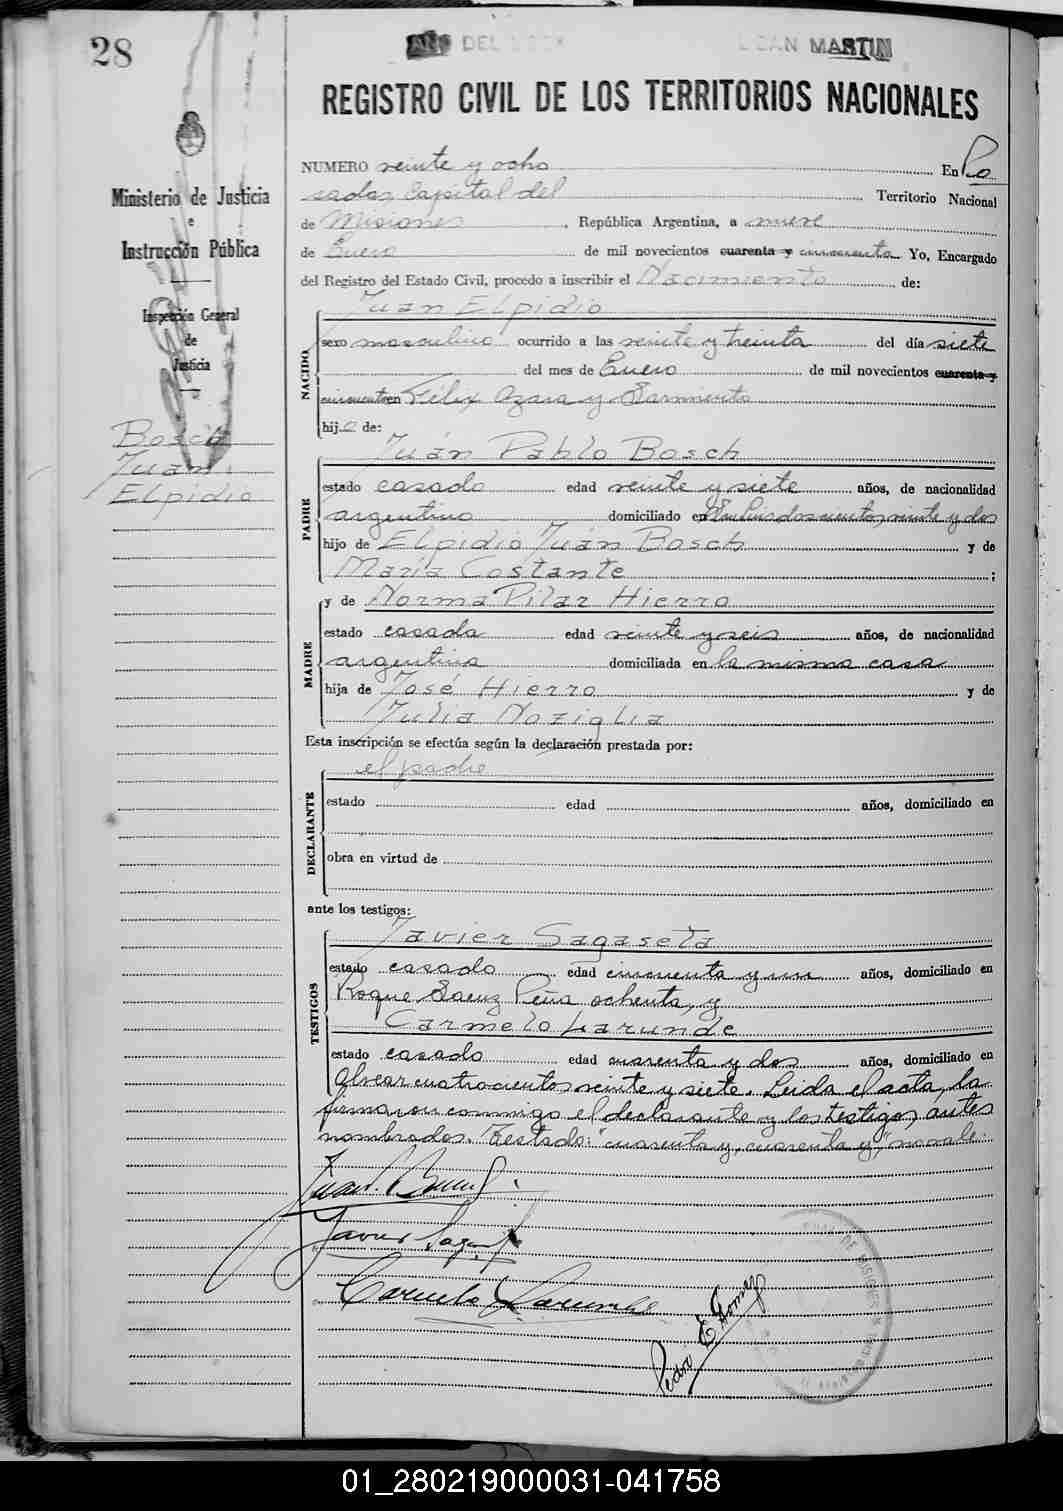 28
AÑO DEL SAN MARTIN
REGISTRO CIVIL DE LOS TERRITORIOS NACIONALES
Ministerio de Justicia
e
Instrucción Pública
Inspección General
de
Justicia
Bosch
Juan
Elpidio
NUMERO veinte y ocho En Po
sadas, Capital del Territorio Nacional
de Misiones, República Argentina, a nueve
de Enero de mil novecientos cuarenta y cincuenta Yo, Encargado
del Registro del Estado Civil, procedo a inscribir el Nacimiento de:
NACIDO
Juan Elpidio
sexo masculino ocurrido a las veinte y treinta del día siete
del mes de Enero de mil novecientos cuarenta y
cincuenta en Félix Azara y Sarmiento
hijo de:
PADRE
Juán Pablo Bosch
estado casado edad veinte y siete años, de nacionalidad
argentino domiciliado en San Luis doscientos veinte y dos
hijo de Elpidio Juán Bosch y de
María Costante ;
MADRE
y de Norma Pilar Hierro
estado casada edad veinte y seis años, de nacionalidad
argentina domiciliada en la misma casa
hija de José Hierro y de
Julia Noziglia
Esta inscripción se efectúa según la declaración prestada por:
DECLARANTE
el padre
estado edad años, domiciliado en
obra en virtud de
ante los testigos:
TESTIGOS
Javier Sagaseta
estado casado edad cincuenta y un años, domiciliado en
Roque Saenz Peña ochenta, y
Carmelo Larunde
estado casado edad cuarenta y dos años, domiciliado en
Alvear cuatrocientos veinte y siete. Leida el acta, la
firmaron conmigo el declarante y los testigos antes
nombrados. Testado: "cuarenta y, cuarenta y", no vale.
Juan P. Bosch
Javier Sagaseta
Carmelo Larunde
Pedro E. Gomez
DE MISIONES
01_280219000031-041758